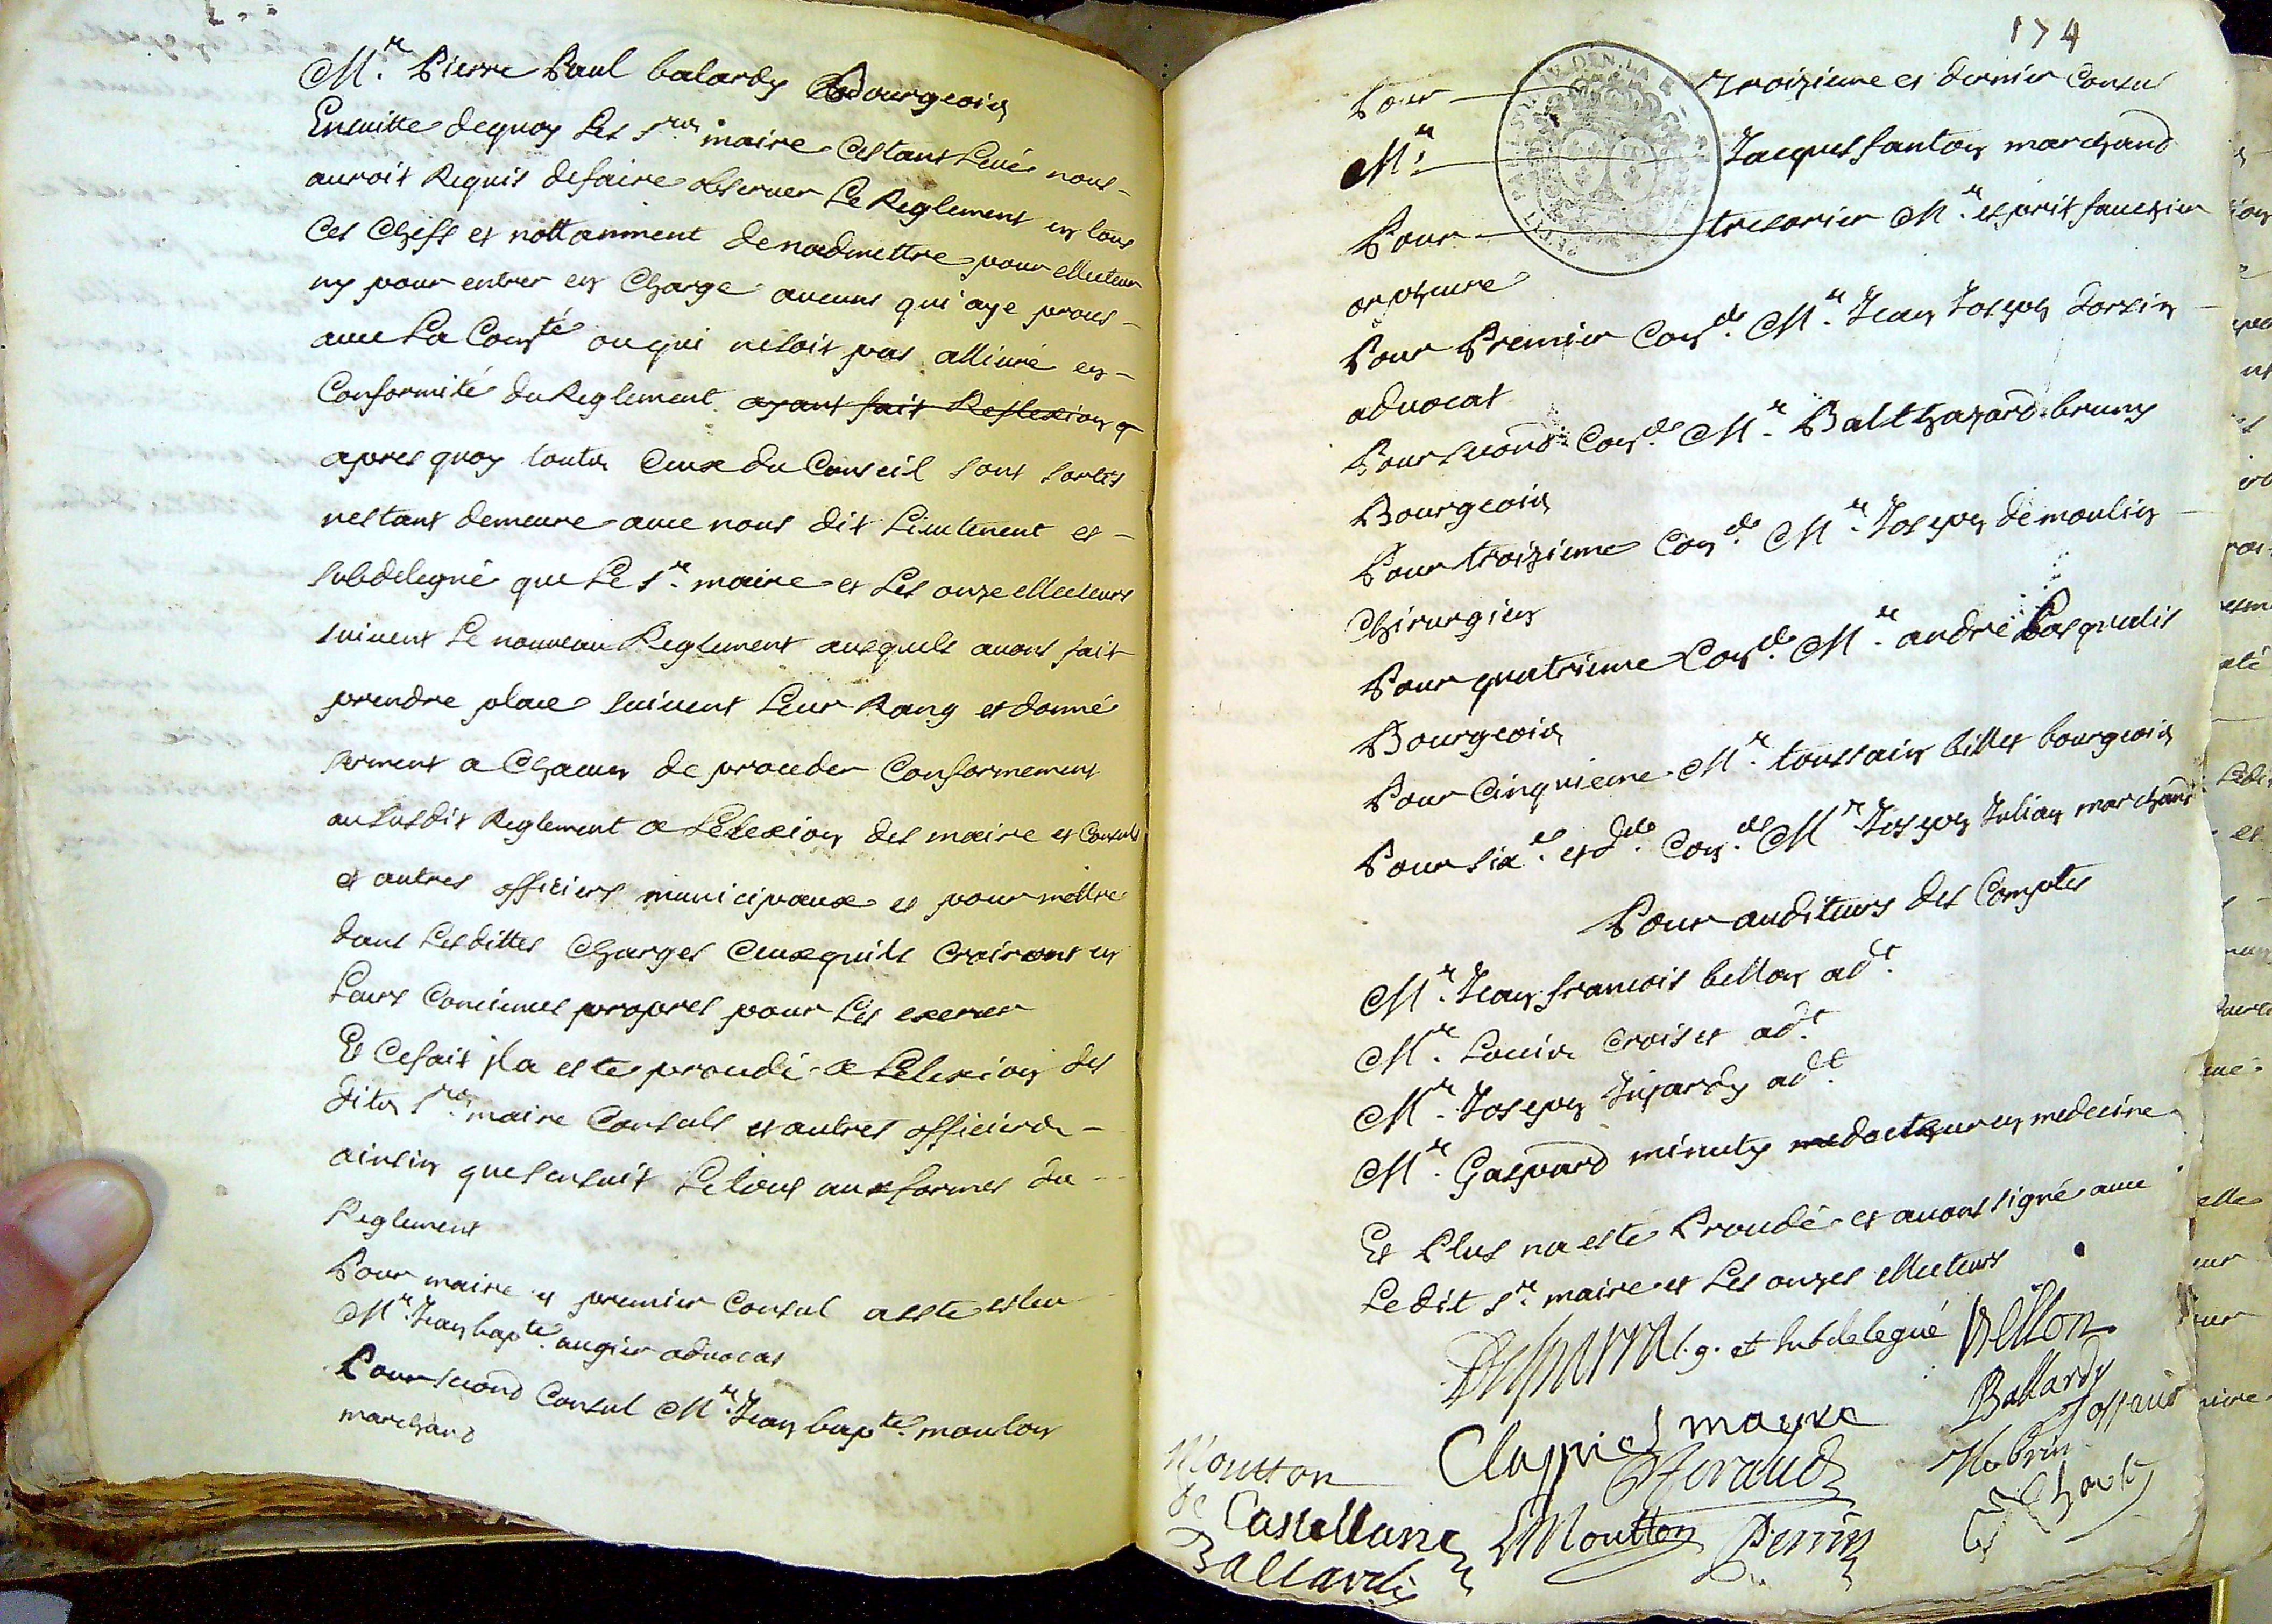 Mr. Pierre Paul balardy Bourgeois
Ensuitte dequoy Les srs maire Cestant Levé nous
auroit Requis defaire observer Le Reglement en tous
Ces Chefs et nottamment denadmettre pour ellecteur
ny pour entrer en Charge aucuns qui aye proces
avec La Comté ou qui nesoit pas allivré en
Conformité du Reglement ayant fait Reflexion q
apres quoy toutes Ceux du Conseil sont sortis
nestant demeure avec nous dit Lieutenent et
subdelegué que Le sr. maire et Les onze ellecteurs
suivent Le nouveau Reglement ausquels avons fait
prendre place suivent Leur Rang et donné
serment a Chacun de proceder Conformement
au susdit Reglement a Lelexion des maire et Consuls
et autres officiers municipaux et pour mettre
dans Lesdittes Charges Ceux quils Croiront en
Leurs Consiences propres pour Les exercer
Et Cefait jla este procedé a Lelexion des
dits srs. maire Consuls et autres officiers
ainsin que sensuit Le tous aux formes du
Reglement
Pour maire et premier Consul a esté esleu
Mr. Jean bapte. augier advocat
Pour second Consul Mr. Jean bapte. mouton
marchand
174
Pour troizieme et dernier Consul
Mr. Jacques fanton marchand
Pour tresorier Mr. esprit fauchier
orpheure
Pour Premier Conder. Mr. Jean Joseph dorsin
advocat
Pour second Conder. Mr. Balthazard bruny
Bourgeois
Pour troizieme Conder. Mr. Joseph demoulin
Chirurgien
Pour quatrieme Conder. Mr. andré Pasqualis
Bourgeois
Pour Cinquieme Mr. toussain billet bourgeois
Pour six.e et d.er Con.der Mr Joseph Julian marchand
Pour auditeurs des Comptes
Mr. Jean francois bellon adt.
Mr. Louis Croiset adt.
Mr. Joseph Jujardy adt.
Mr. Gaspard minuty docteur en medecine
Et Plus na esté Procedé et avons signé avec
Ledit sr. maire et Les onzes ellecteurs
l. g. et subdelegué Bellon
Ballardy
Clappiers mayre
Joffroid
Moutton
Giraud
de Castellane
Moutton Perrin
Ballardi